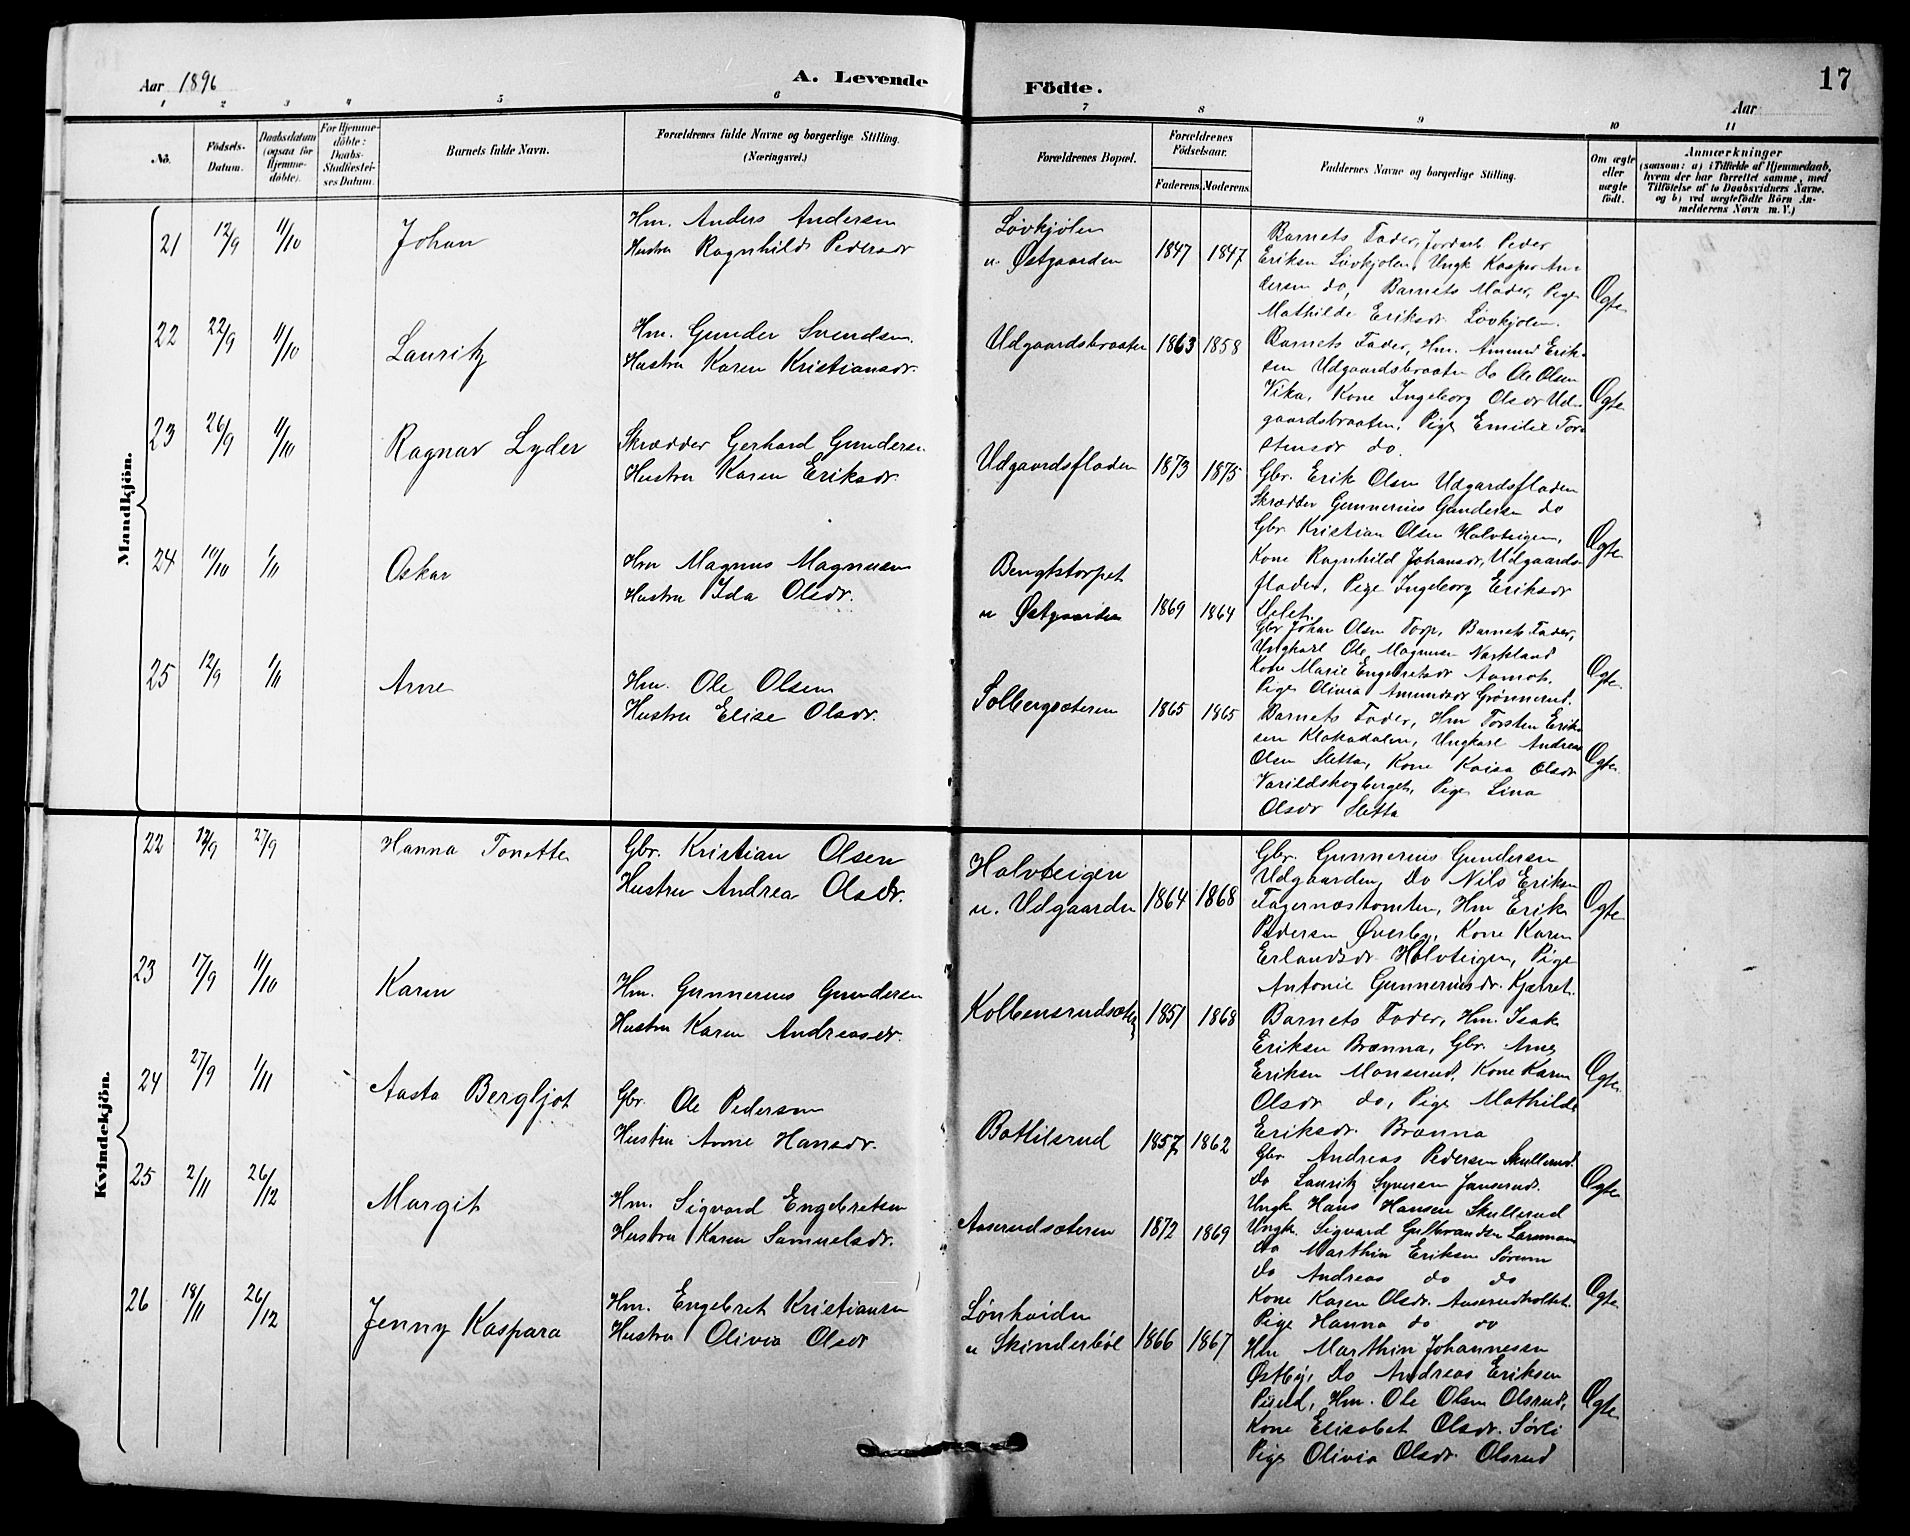 Aar 1896
A. Levende
Födte.
17
Aar
1 2 3 4 5 6 7 8 9 10 11
No. Födsels-Datum. Daabsdatum (ogsaa for Hjemmedöbte). For Hjemmedöbte: Daabs-Stadfæstelses Datum. Barnets fulde Navn. Forældrenes fulde Navne og borgerlige Stilling. (Næringsvei.)
Forældrenes Bopæl. Forældrenes Födselsaar. Faderens Moderens Faddernes Navne og borgerlige Stilling. Om ægte eller uægte födt.
Anmærkninger
(saasom: a) i Tilfælde af Hjemmedaab,
hvem der har forrettet samme, med
Tilföielse af to Daabsvidners Navne.
og b) ved uægtefödte Börn An-
melderens Navn m. V.)
Mandkjön.
21 12/9 11/10 Johan
Hm. Anders Andersen
Hustru Ragnhild Pedersdr
Løvkjølen
u. Østgaarden
1847 1847
Barnets Fader, Jordarb Peder
Eriksen Løvkjolen, Ungk Kasper An-
dersen do, Barnets Moder, Pige
Mathilde Eriksdr Løvkjolen.
Ægte
22 22/9 11/10 Lauritz
Hm. Gunder Svendsen
Hustru Karen Kristiansdr.
Udgaardsbraaten
1863 1858
Barnets Fader, Hm. Amund Erik-
sen Udgaardsbraaten do Ole Olsen
Vika, Kone Ingeborg Olsdr Ud-
gaardsbraaten, Pige Emilie Tor-
stensdr do.
Ægte
23 26/9 11/10 Ragnar Lyder
Skrædder Gerhard Gundersen
Hustru Karen Eriksdr.
Udgaardsfladen
1873 1875
Gbr. Erik Olsen Udgardsfladen
Skrædder Gunnerius Gundersen do
Gbr. Kristian Olsen Halvteigen,
Kone Ragnhild Johansdr, Udgaards-
fladen, Pige Ingeborg Eriksdr
Ægte
24 10/10 1/11 Oskar
Hm Magnus Magnusen
Hustru Ida Olsdr.
Bengtstorpet
u Østgaarden
1869 1864
Gbr Johan Olsen Torp, Barnets Fader,
Ungkarl Ole Magnusen
Kone Marie Engebretsdr Aamot,
Pige Olivia Amundsdr Grønnerud.
Ægte
25 12/9 1/11 Arne
Hm. Ole Olsen
Hustru Elise Olsdr.
Solbergsæteren
1865 1865
Barnets Fader, Hm Torsten Erik-
sen Klokadalen, Ungkarl Andreas
Olsen Sletta, Kone Kaisa Olsdr
Varildskogberget, Pige Lina
Olsdr Sletta
Ægte
Kvindekjön.
22 12/9 27/9 Hanna Tonette
Gbr. Kristian Olsen
Hustru Andrea Olsdr.
Halvteigen
u. Udgaarden
1864 1868
Gbr. Gunnerius Gundersen
Udgaarden, Do Nils Eriksen
Fagernæstomten, Hm Erik
Pedersen Øverby, Kone Karen
Erlandsdr Halvteigen, Pige
Antonie Gunneriusdr. Kjærret.
Ægte
23 17/9 11/10 Karen
Hm. Gunnerius Gundersen
Hustru Karen Andreasdr.
Kolbensrudsæter
1851 1868
Barnets Fader, Hm. Isak
Eriksen Brænna, Gbr. Arne
Eriksen Monserud, Kone Karen
Olsdr do, Pige Mathilde
Eriksdr. Brænna
Ægte
24 27/9 1/11 Aasta Bergljot
Gbr. Ole Pedersen
Hustru Anne Hansdr.
Bottilsrud
1857 1862
Gbr. Andreas Pedersen Skullerud.
Do Lauritz Syversen Janserud.
Ungk Hans Hansen Skullerud
Ægte
25 2/11 26/12 Margit
Hm. Sigvard Engebretsen
Hustru Karen Samuelsdr.
Aaserudsæteren
1872 1869
Ungk. Sigvard Gulbrandsen
do Marthin Eriksen Sørum
do Andreas do do
Kone Karen Olsdr. Aaserudholtet.
Pige Hanna do do
Ægte
26 18/11 26/12 Jenny Kaspara
Hm. Engebret Kristiansen
Hustru Olivia Olsdr
Lønhaiden
u Skinderbøl
1866 1867
Hm Marthin Johannesen
Østby, Do Andreas Eriksen
Hm. Ole Olsen Olsrud,
Kone Elisabet Olsdr. Sørli
Pige Olivia Olsdr. Olsrud
Ægte